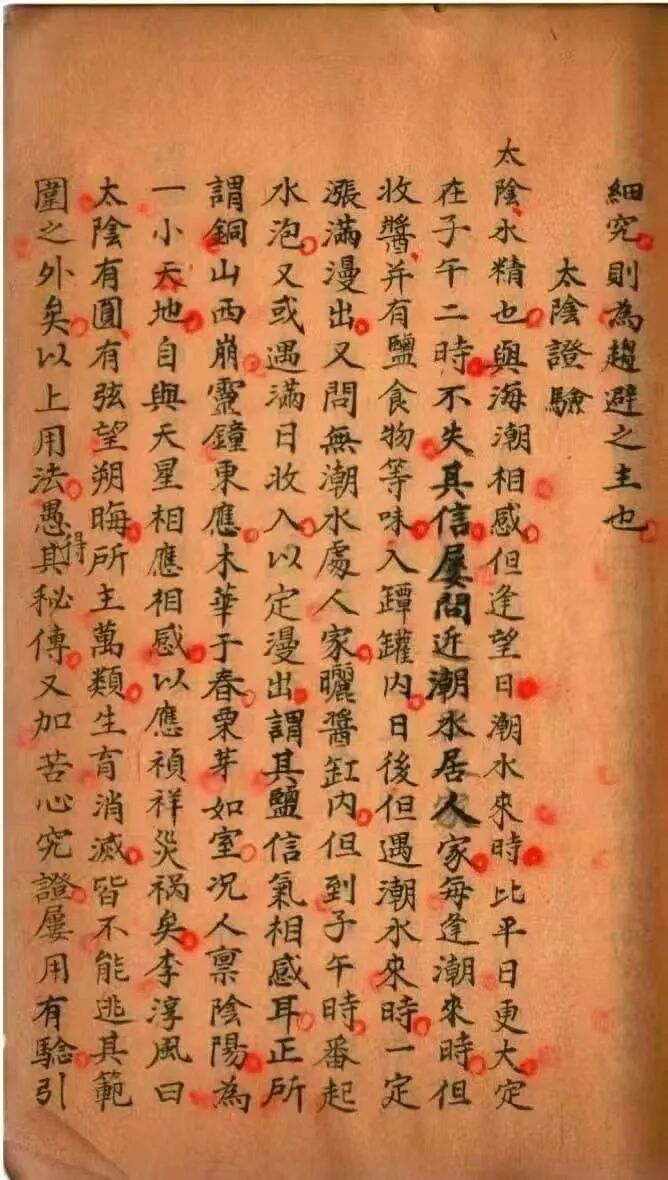 細究則為趨避之主也
太陰證驗
太陰水精也與海潮相感但逢望日潮水來時比平日更大定
在子午二時不失其信屢問近潮水居人家每逢潮來時但
收醬并有鹽食物等味入罈罐内日後但遇潮水來時一定
漲滿漫出又問無潮水處人家曬醬缸内但到子午時番起
水泡又或遇滿日收入以定漫出謂其鹽信氣相感耳正所
謂銅山西崩靈鐘東應木華于春栗芽如室况人禀陰陽為
一小天地自與天星相應相感以應禎祥災祸矣李淳風曰
太陰有圓有弦望朔晦所主萬類生育消滅皆不能逃其範
圍之外矣以上用法愚得其秘傳又加苦心究證屢用有驗引